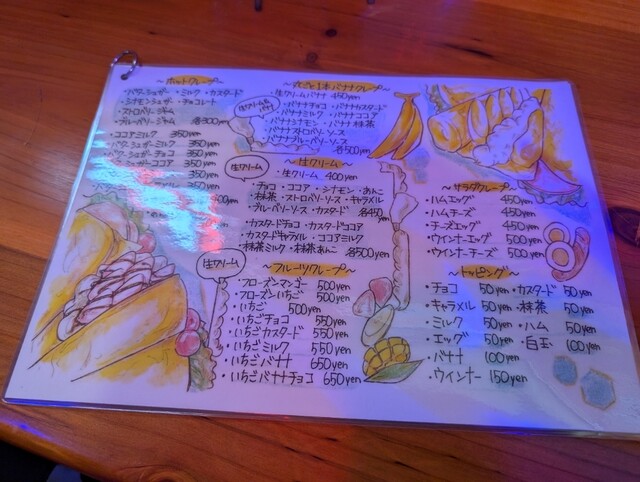 ～ホットクレープ～
・バターシュガー ・ミルク ・カスタード
・シナモンシュガー ・チョコレート
・ストロベリージャム
・ブルーベリージャム 各300yen
・ココアミルク 350yen
・バターシュガーミルク 350yen
・バターシュガーチョコ 350yen
・バターシュガーココア 350yen
350yen
400yen
～まるごと1本バナナクレープ～
生クリーム&
バナナ
・生クリームバナナ 450yen
・バナナチョコ ・バナナカスタード
・バナナミルク ・バナナココア
・バナナシナモン ・バナナ抹茶
・バナナストロベリーソース
・バナナブルーベリーソース
各500yen
～生クリーム～
生クリーム
・生クリーム 400yen
・チョコ ・ココア ・シナモン ・あんこ
・抹茶 ・ストロベリーソース ・キャラメル
・ブルーベリーソース ・カスタード 各450yen
・カスタードチョコ ・カスタードココア
・カスタードキャラメル ・ココアミルク
・抹茶ミルク ・抹茶あんこ 各500yen
～フルーツクレープ～
生クリーム
・フローズンマンゴー 500yen
・フローズンいちご 500yen
・いちご 500yen
・いちごチョコ 550yen
・いちごカスタード 550yen
・いちごミルク 550yen
・いちごバナナ 650yen
・いちごバナナチョコ 650yen
～サラダクレープ～
・ハムエッグ 450yen
・ハムチーズ 450yen
・チーズエッグ 450yen
・ウインナーエッグ 500yen
・ウインナーチーズ 500yen
～トッピング～
・チョコ 50yen ・カスタード 50yen
・キャラメル 50yen ・抹茶 50yen
・ミルク 50yen ・ハム 50yen
・エッグ 50yen ・白玉 100yen
・バナナ 100yen
・ウインナー 150yen